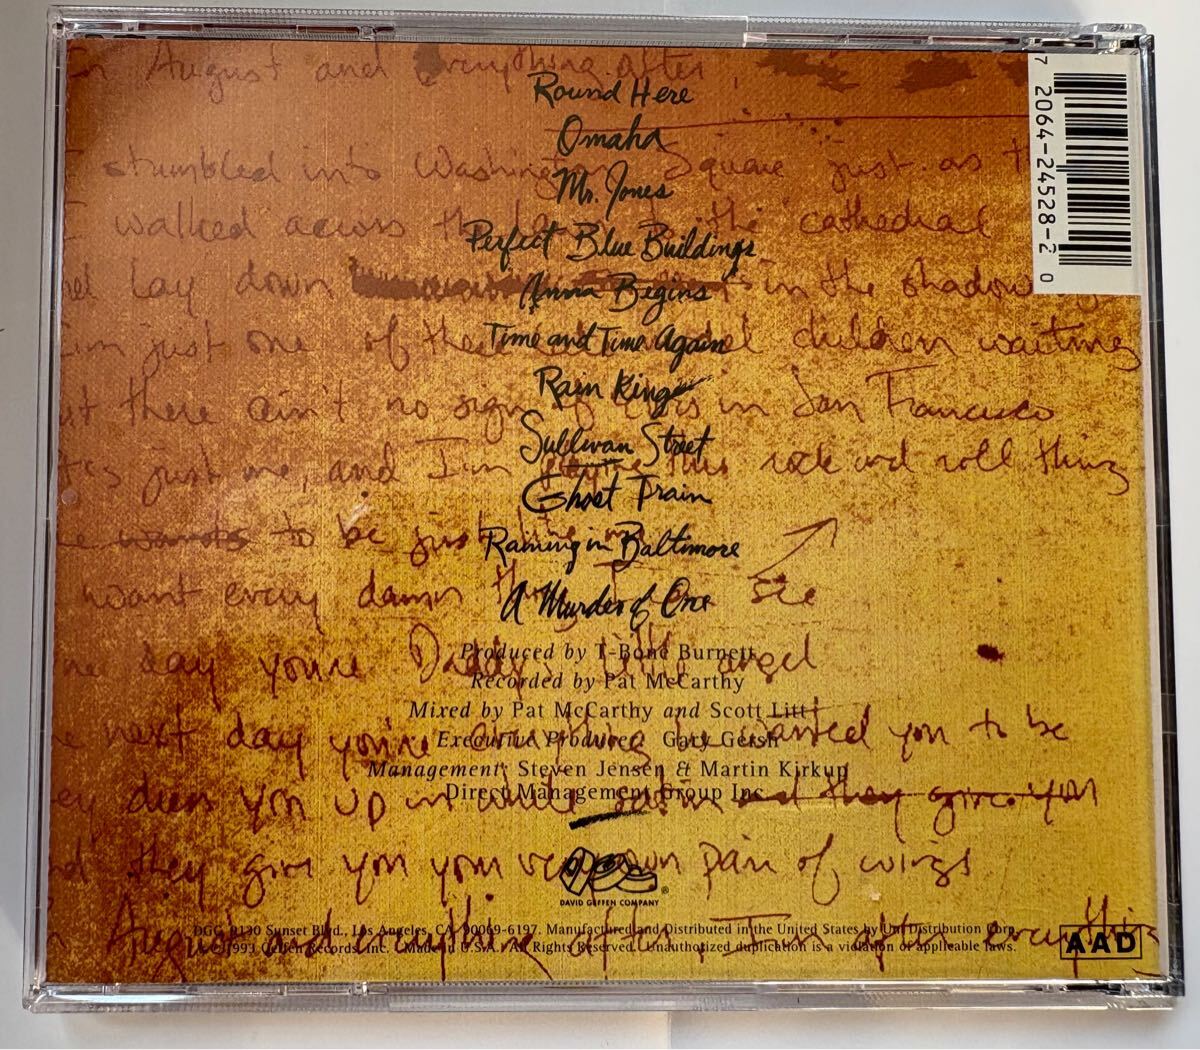 In August and Everything After,
Round Here
Omaha
I stumbled into Washington Square just as t
Mr. Jones
I walked across the the cathedral
Perfect Blue Buildings
lay down in the shadow
Anna Begins
I'm just one of these children waiting
Time and Time Again
Rain King
there ain't no sign of in San Francisco
Sullivan Street
it's just me, and I'm this rock and roll thing
Ghost Train
wants to be just like me
Raining in Baltimore
want every damn thing I see
A Murder of One
Produced by T-Bone Burnett
day you're Daddy's little angel
Recorded by Pat McCarthy
Mixed by Pat McCarthy and Scott Litt
next day you're everything he wanted you to be
Executive Producer Gary Gersh
Management: Steven Jensen & Martin Kirkup
Direct Management Group Inc.
they dress you up in white satin and they give you
DGC
they give you your very own pair of wings
DAVID GEFFEN COMPANY
®
DGC, 9130 Sunset Blvd., Los Angeles, CA 90069-6197. Manufactured and Distributed in the United States by Uni Distribution Corp.
In August and everything after, I'm after everything
© 1993 Geffen Records Inc. Made in U.S.A. All Rights Reserved. Unauthorized duplication is a violation of applicable laws.
AAD
7 2064-24528-2 0